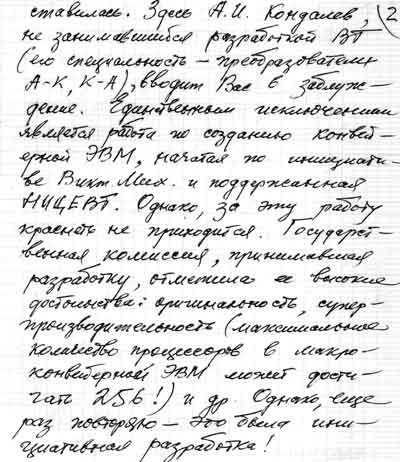 ставилась. Здесь А.И. Кондалев, 2
не занимавшийся разработкой ВТ
(его специальность – преобразователи
А-К, К-А), вводит Вас в заблуж-
дение. Единственным исключением
является работа по созданию конвей-
ерной ЭВМ, начатая по инициати-
ве Викт. Мих. и поддержанная
НИЦЕВТ. Однако, за эту работу
краснеть не приходится. Государст-
венная комиссия, принимавшая
разработку, отметила ее высокие
достоинства: оригинальность, супер-
производительность (максимальное
количество процессоров в макро-
конвейерной ЭВМ может дости-
гать 256!) и др. Однако, еще
раз повторяю – это была ини-
циативная разработка!